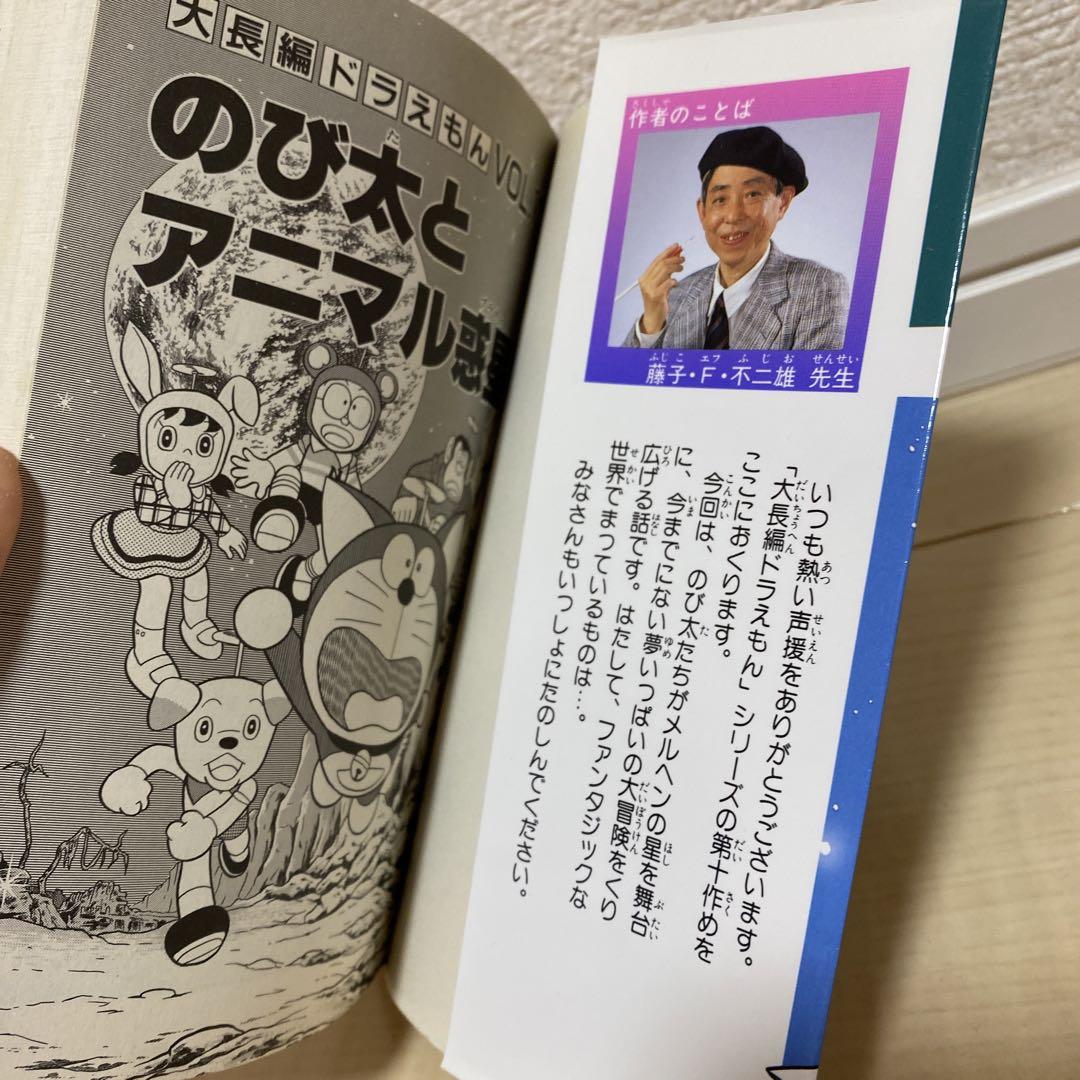 大長編ドラえもんVOL.
のび太と
アニマル惑星
作者のことば
藤子・F・不二雄 先生
いつも熱い声援をありがとうございます。
「大長編ドラえもん」シリーズの第十作めを
ここにおくります。
今回は、のび太たちがメルヘンの星を舞台
に、今までにない夢いっぱいの大冒険をくり
広げる話です。はたして、ファンタジックな
世界でまっているものは…。
みなさんもいっしょにたのしんでください。